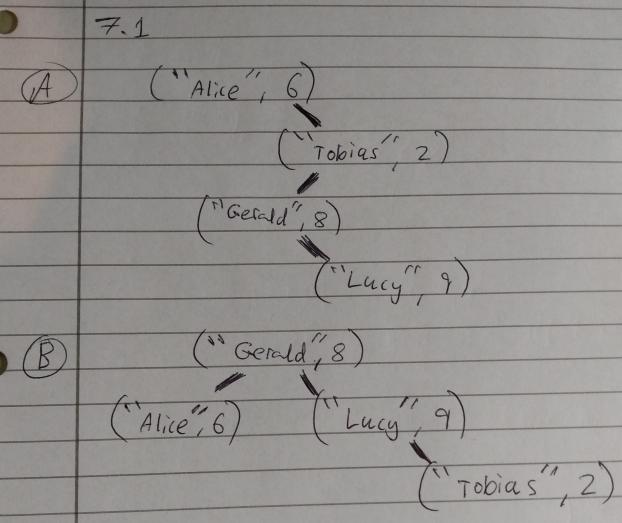 7.1
A
("Alice", 6)
("Tobias", 2)
("Gerald", 8)
("Lucy", 9)
B
("Gerald", 8)
("Alice", 6) ("Lucy", 9)
("Tobias", 2)